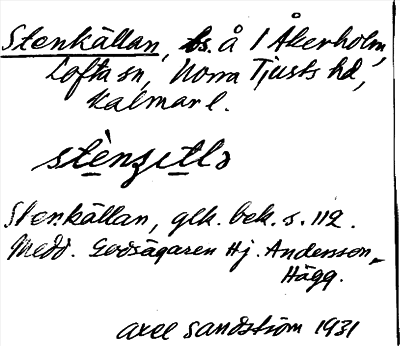 Stenkällan, ls. å 1 Åkerholm,
Lofta sn, Norra Tjusts hd,
Kalmar l.
Stenkällan, glk. bek. s. 112.
Medd. Godsägaren Hj. Andersson,
Hägg.
Axel Sandström 1931